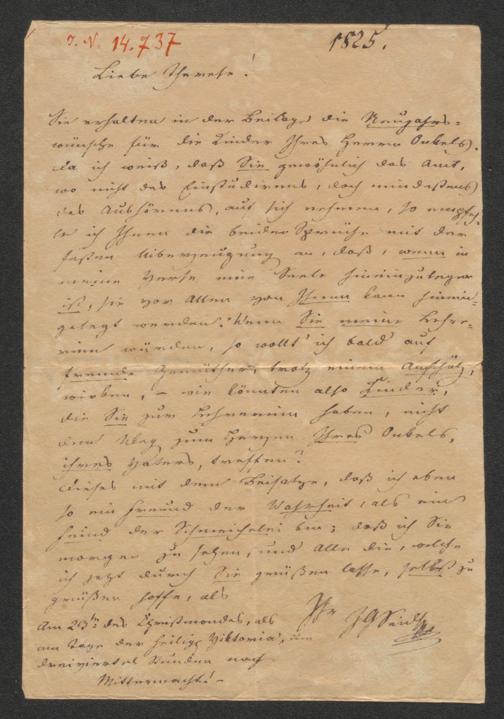 J. N. 14.737
1825.
Liebe Therese!
Sie erhalten in der Beilage die Neujahrs-
wünsche für die Kinder Ihres Herrn Onkels.
Da ich weiß, daß Sie gewöhnlich das Amt,
wo nicht des Einstudirens, doch mindestens
des Aushörens, auf sich nehmen, so empfeh-
le ich Ihnen die beiden Sprüche mit der
festen Überzeugung an, daß, wenn in
meine Verse eine Seele hineinzulegen
ist, sie vor Allen von Ihnen kann hinein-
gelegt werden. Wenn Sie meine Lehre-
rinn würden, so wollt' ich bald auf
fremde Gemüther, trotz einem Anschütz,
wirken, – wie könnten also Kinder,
die Sie zur Lehrerinn haben, nicht
den Weg zum Herzen Ihres Onkels,
ihres Vaters, treffen?
Dieses mit dem Beisatze, daß ich eben
so ein Freund der Wahrheit, als ein
Feind der Schmeichelei bin; daß ich Sie
morgen zu sehen, und Alle die, welche
ich jetzt durch Sie grüßen lasse, selbst zu
grüßen hoffe, als
Ihr JGSeidl
Am 23ten des Christmondes, als
am Tage der heilige Viktoria, um
dreiviertel Stunden nach
Mitternacht! –